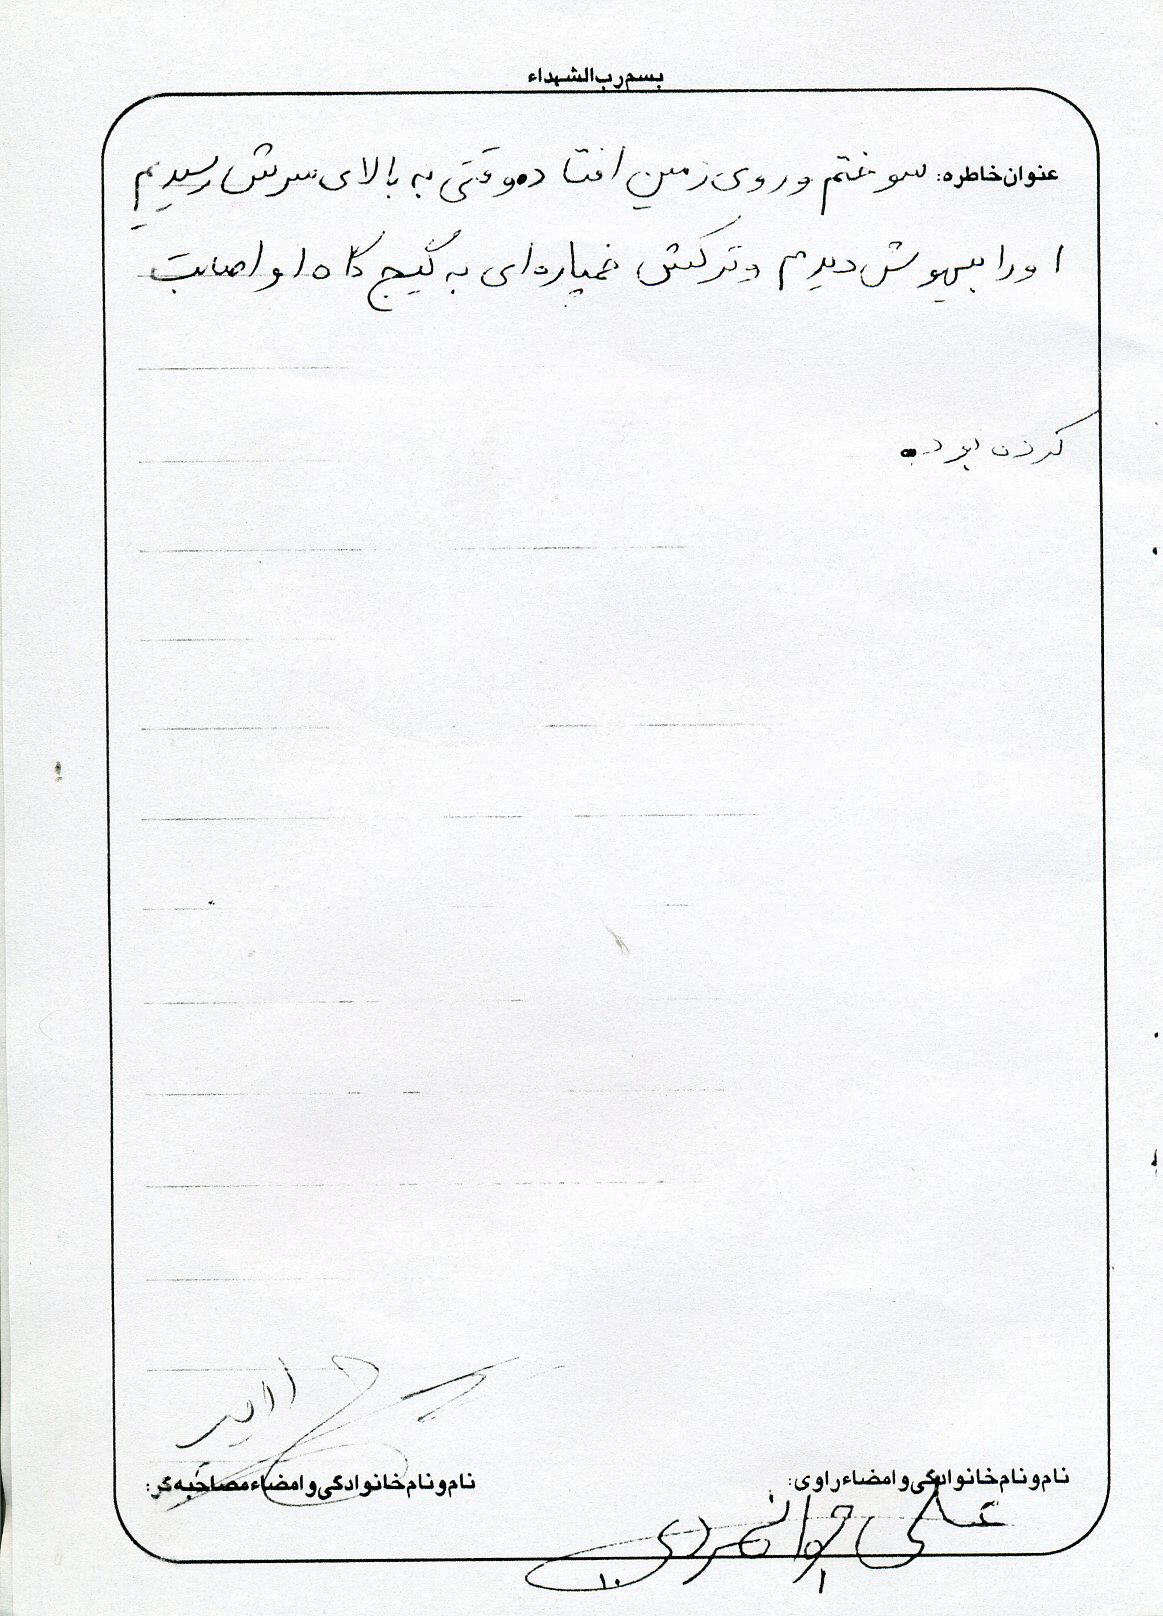 بسم رب الشهداء
عنوان خاطره: سوختم و روی زمین افتاد و وقتی به بالای سرش رسیدیم
او را بیهوش دیدم و ترکش خمپاره‌ای به گیج گاه او اصابت
کرده بود.
نام و نام خانوادگی و امضاء راوی:
علی جوانمردی
نام و نام خانوادگی و امضاء مصاحبه گر: